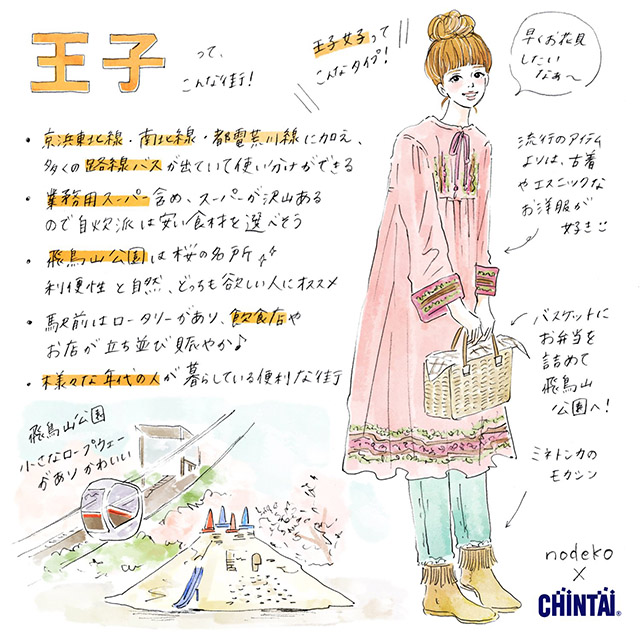 王子
って、
こんな街!
王子女子って
こんなタイプ!
早くお花見
したい
なぁ〜
・京浜東北線・南北線・都電荒川線に加え、
多くの路線バスが出ていて使い分けができる
・業務用スーパー含め、スーパーが沢山ある
ので自炊派は安い食材を選べそう
・飛鳥山公園は桜の名所
利便性と自然、どっちも欲しい人にオススメ
・駅前はロータリーがあり、飲食店や
お店が立ち並び賑やか♪
・様々な年代の人が暮らしている便利な街
流行のアイテム
よりは、古着
やエスニックな
お洋服が
好き
バスケットに
お弁当を
詰めて
飛鳥山
公園へ!
ミネトンカの
モカシン
飛鳥山公園
小さなロープウェー
があり かわいい
nodeko
×
CHINTAI®